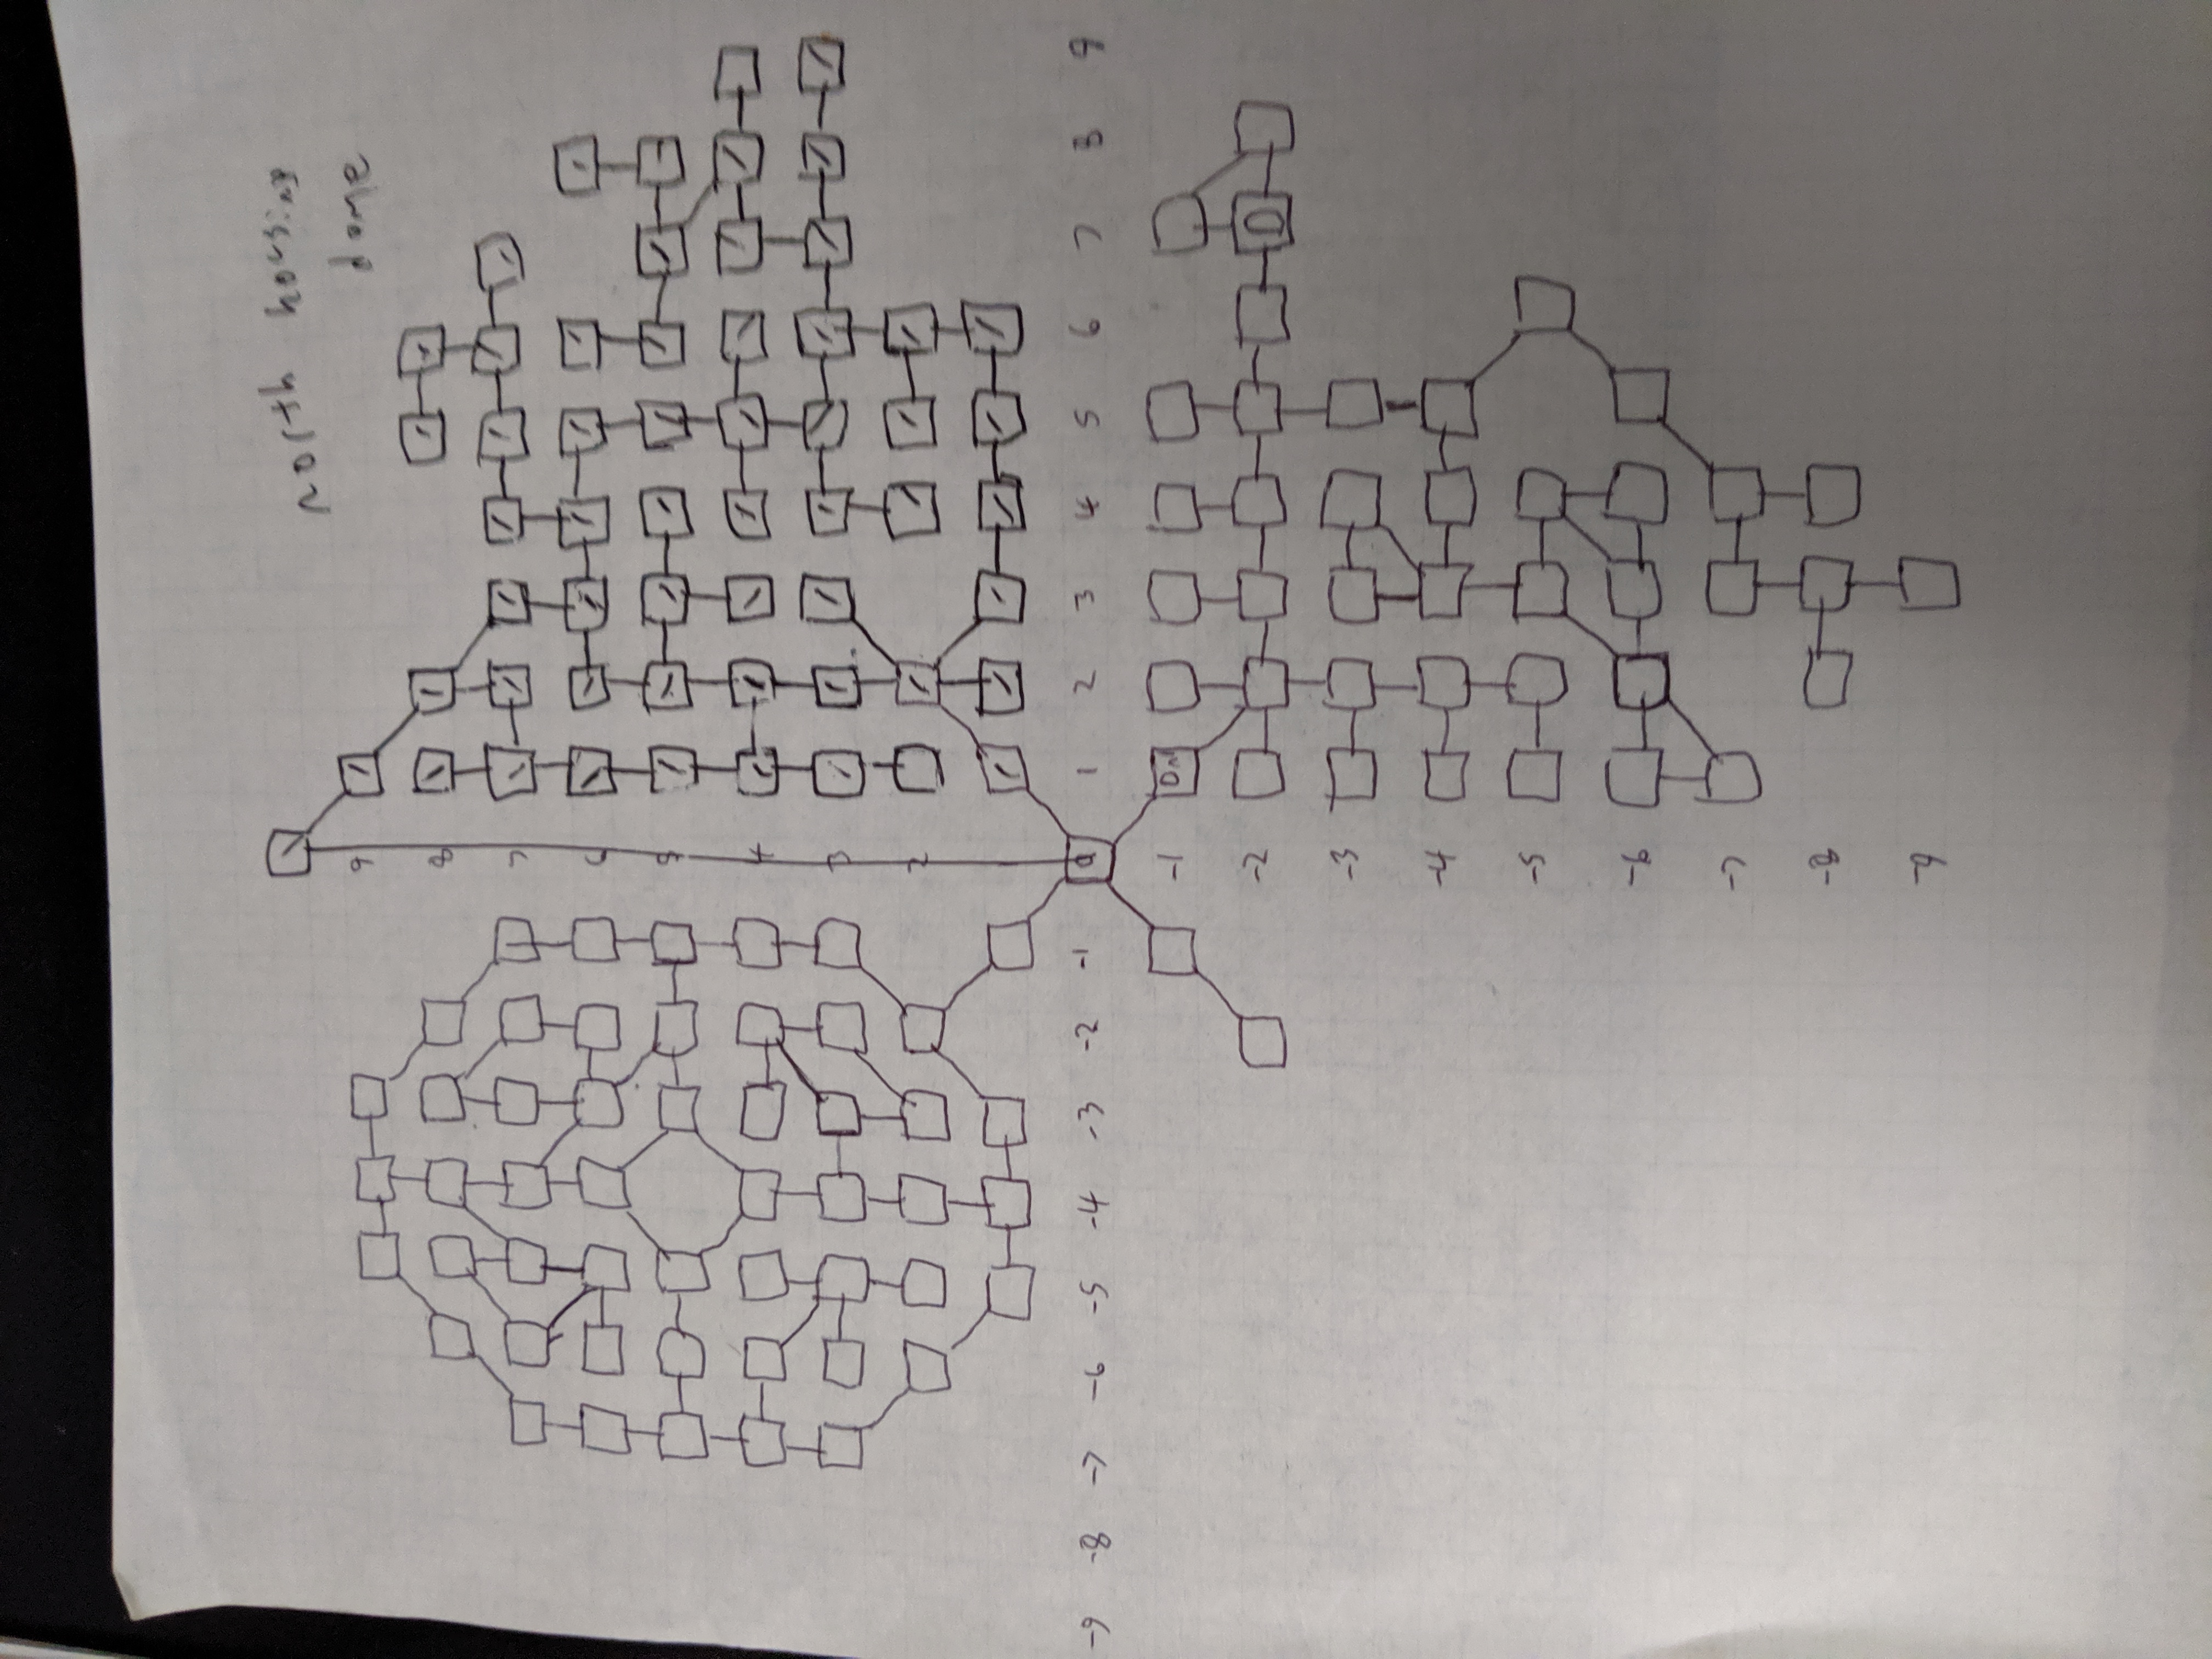 north housing
dome
9
8
7
6
5
4
3
2
-9 -8 -7 -6 -5 -4 -3 -2 -1 0 1 2 3 4 5 6 7 8 9
-1 Dn
-2 D
-3
-4
-5
-6
-7
-8
-9